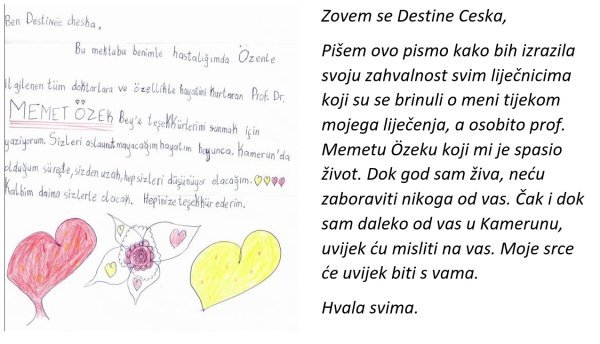 Ben Destineé cheska,
Bu mektubu benimle hastalığımda Özenle
ilgilenen tüm doktorlara ve özellikle hayatimi Kurtaran Prof. Dr.
MEMET ÖZEK Bey'e teşekkürlerimi sunmak için
yazıyorum. Sizleri asla unutmayacağım hayatım boyunca. Kamerun'da
olduğum süreçte, sizden uzak, hep sizleri düşünüyor olacağım.
Kalbim daima sizlerle olacak. Hepinize teşekkür ederim.
Zovem se Destine Ceska,
Pišem ovo pismo kako bih izrazila
svoju zahvalnost svim liječnicima
koji su se brinuli o meni tijekom
mojega liječenja, a osobito prof.
Memetu Özeku koji mi je spasio
život. Dok god sam živa, neću
zaboraviti nikoga od vas. Čak i dok
sam daleko od vas u Kamerunu,
uvijek ću misliti na vas. Moje srce
će uvijek biti s vama.
Hvala svima.